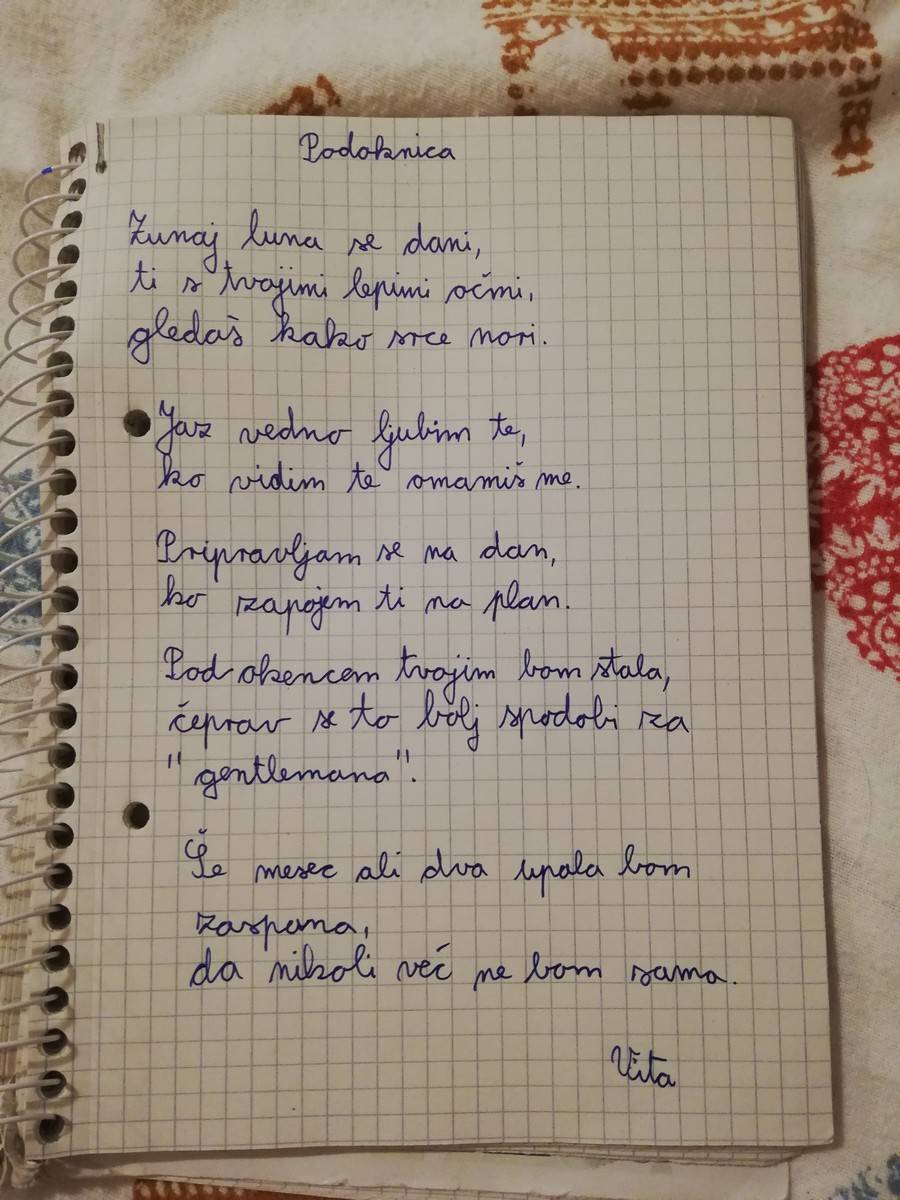 Podoknica
Zunaj luna se dani,
ti s tvojimi lepimi očmi,
gledaš kako srce nori.
Jaz vedno ljubim te,
ko vidim te omamiš me.
Pripravljam se na dan,
ko zapojem ti na plan.
Pod okencem tvojim bom stala,
čeprav se to bolj spodobi za
"gentlemana".
Še mesec ali dva upala bom
zaspana,
da nikoli več ne bom sama.
Vita